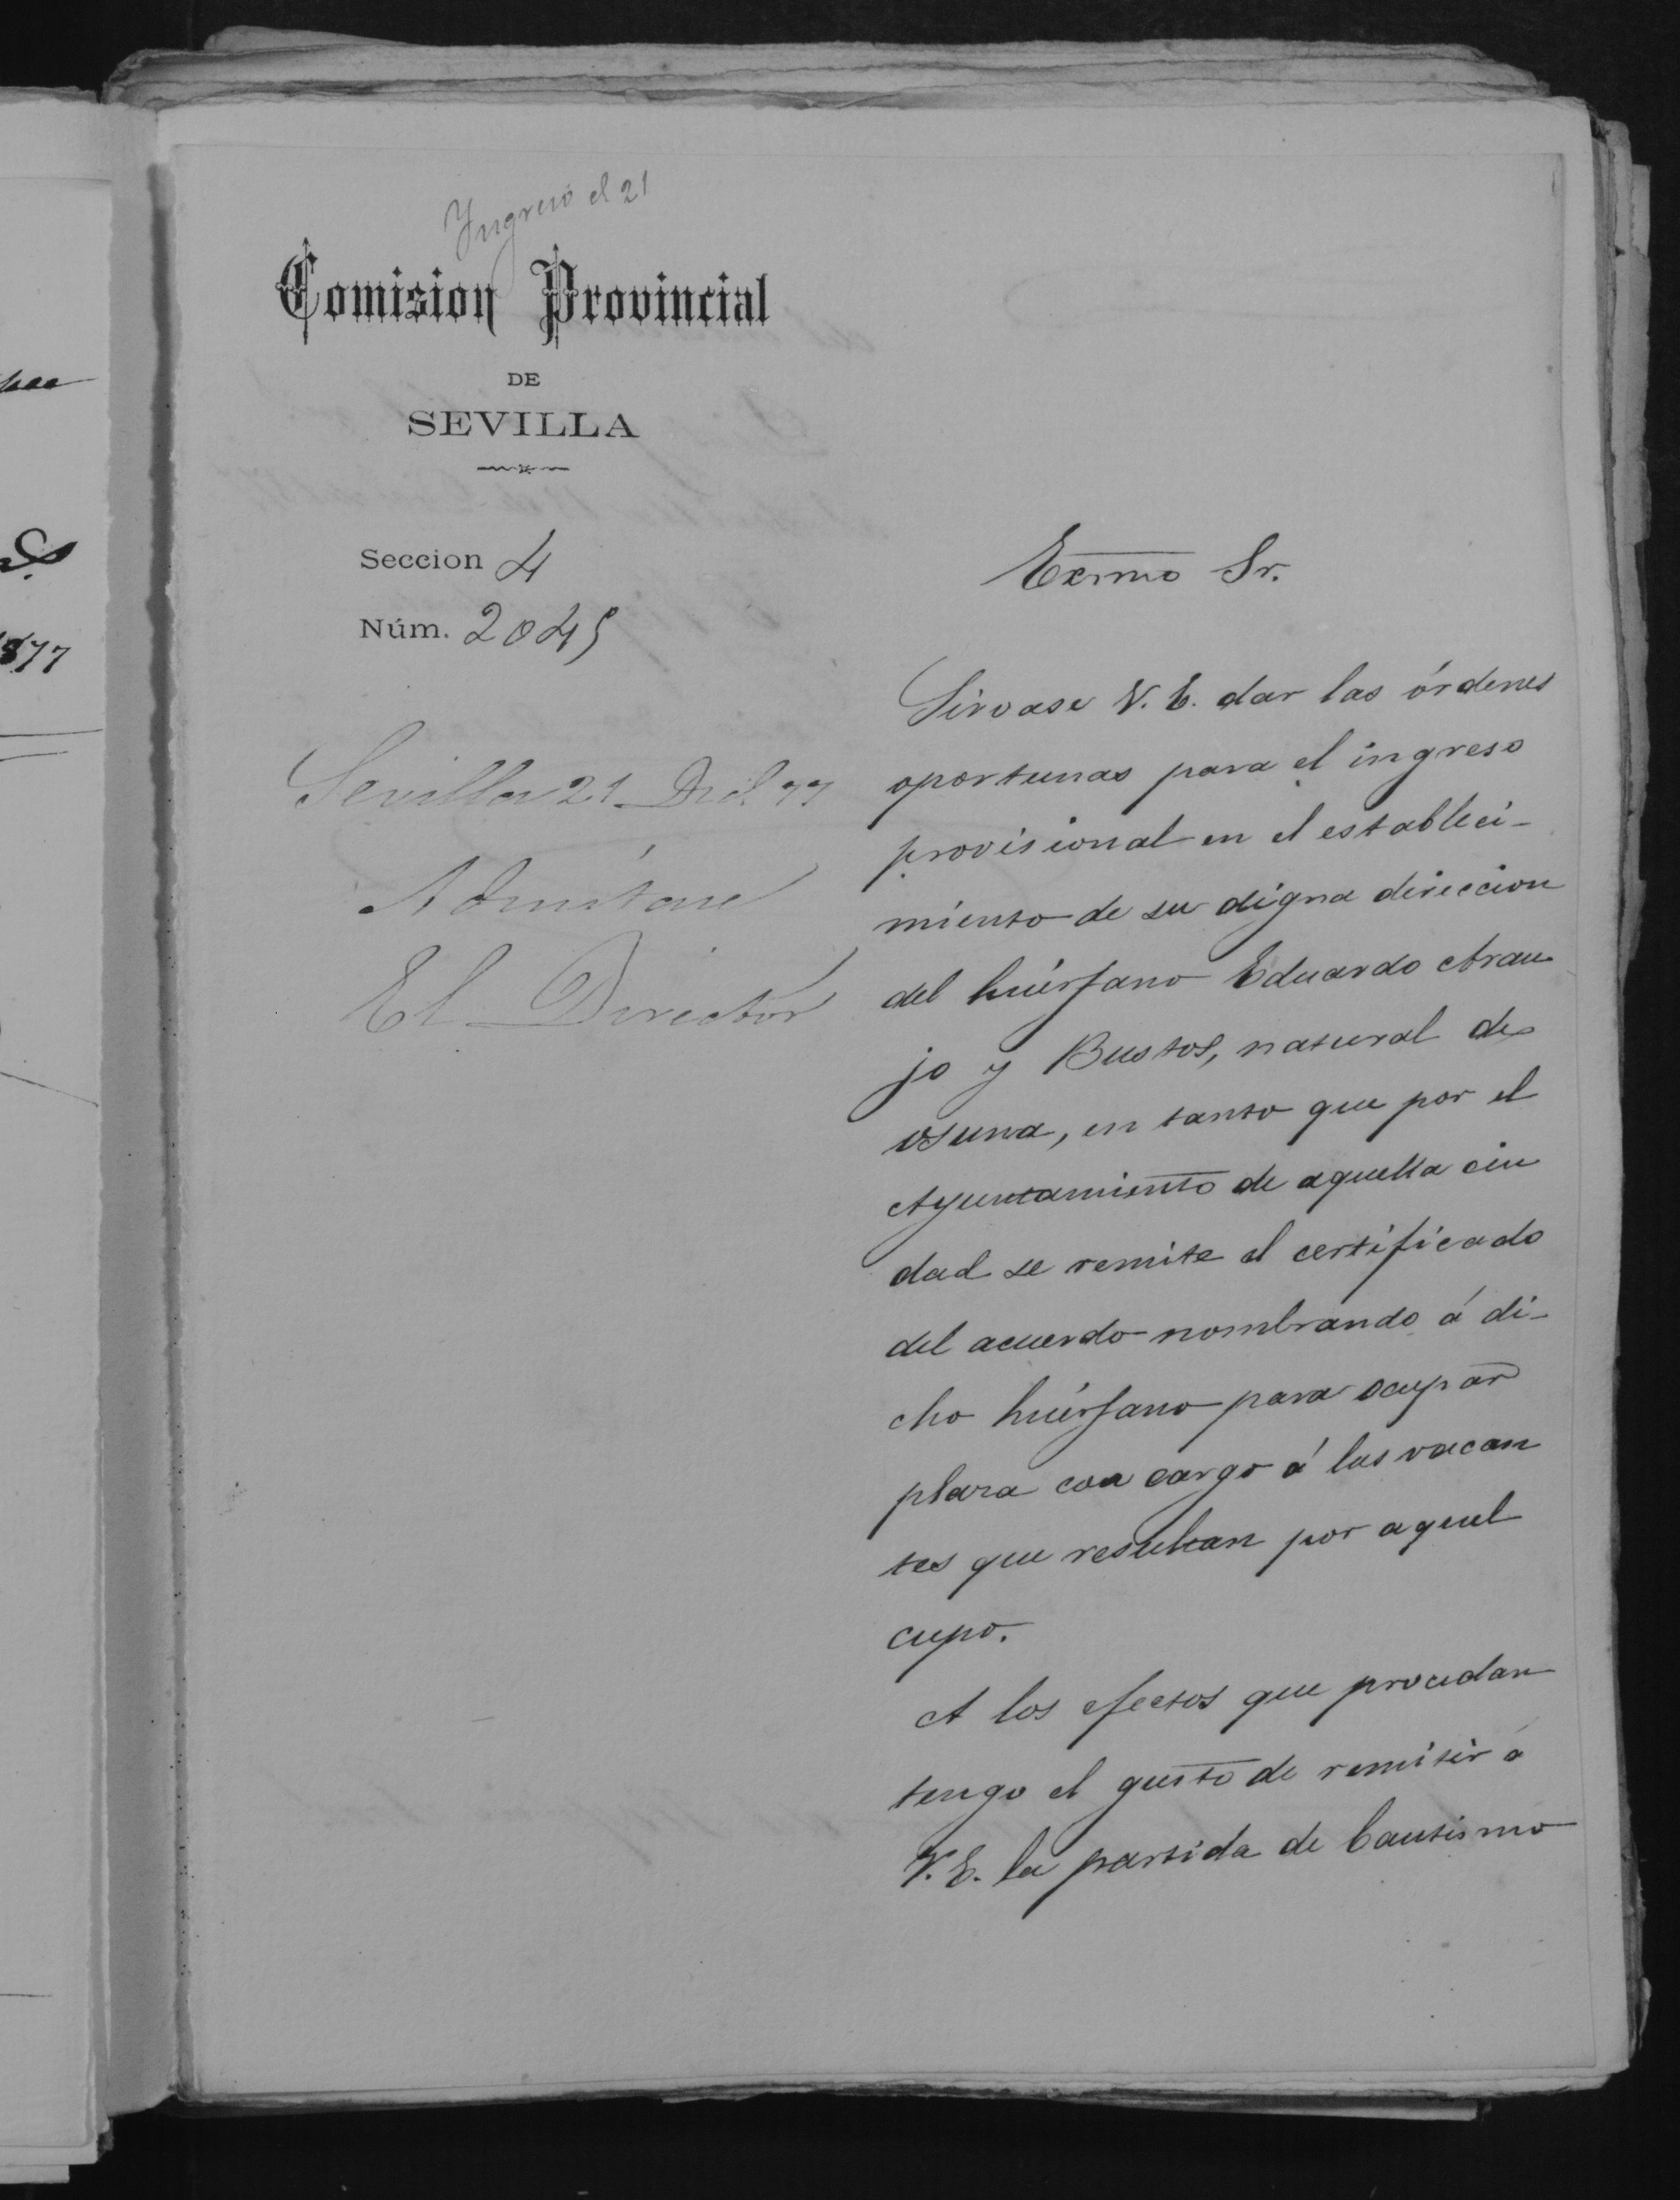 Yngresó el 21
Comision Provincial
DE
SEVILLA
Seccion 4
Núm. 2045
Sevilla 21 77
Admítase
El Director
Exmo Sr.
Sirvase V. E. dar las órdenes
oportunas para el ingreso
provisional en el estableci-
miento de su digna direccion
del huérfano Eduardo Arau
jo y Bustos, natural de
osuna, en tanto que por el
Ayuntamiento de aquella ciu
dad se remite el certificado
del acuerdo nombrando á di-
cho huérfano para ocupar
plaza con cargo á las vacan
tes que resultan por aquel
cupo.
A los efectos que procedan
tengo el gusto de remitir á
V. E. la partida de bautismo
877